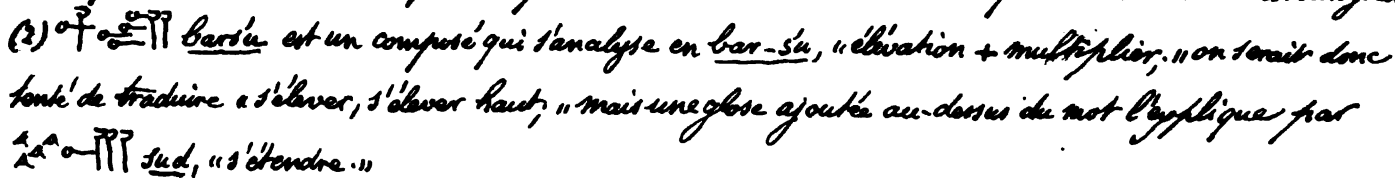 (2) barśu est un composé qui s'analyse en bar-śu, "élévation + multiplier," on serait donc
tenté de traduire "s'élever, s'élever haut," mais une glose ajoutée au-dessus du mot l'explique par
sud, "s'étendre."